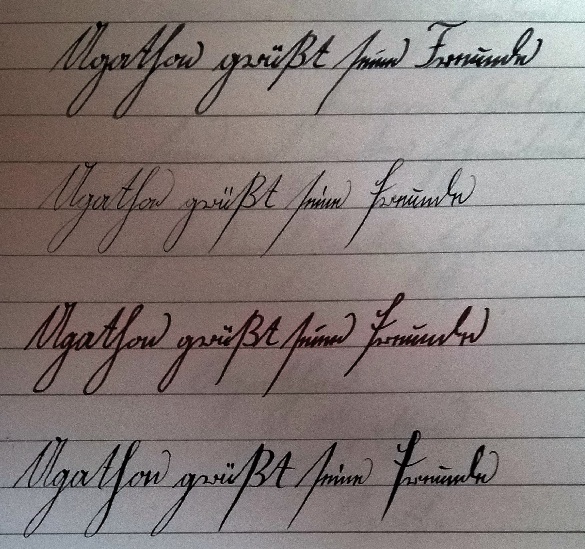 Agathon grüßt seine Freunde
Agathon grüßt seine Freunde
Agathon grüßt seine Freunde
Agathon grüßt seine Freunde